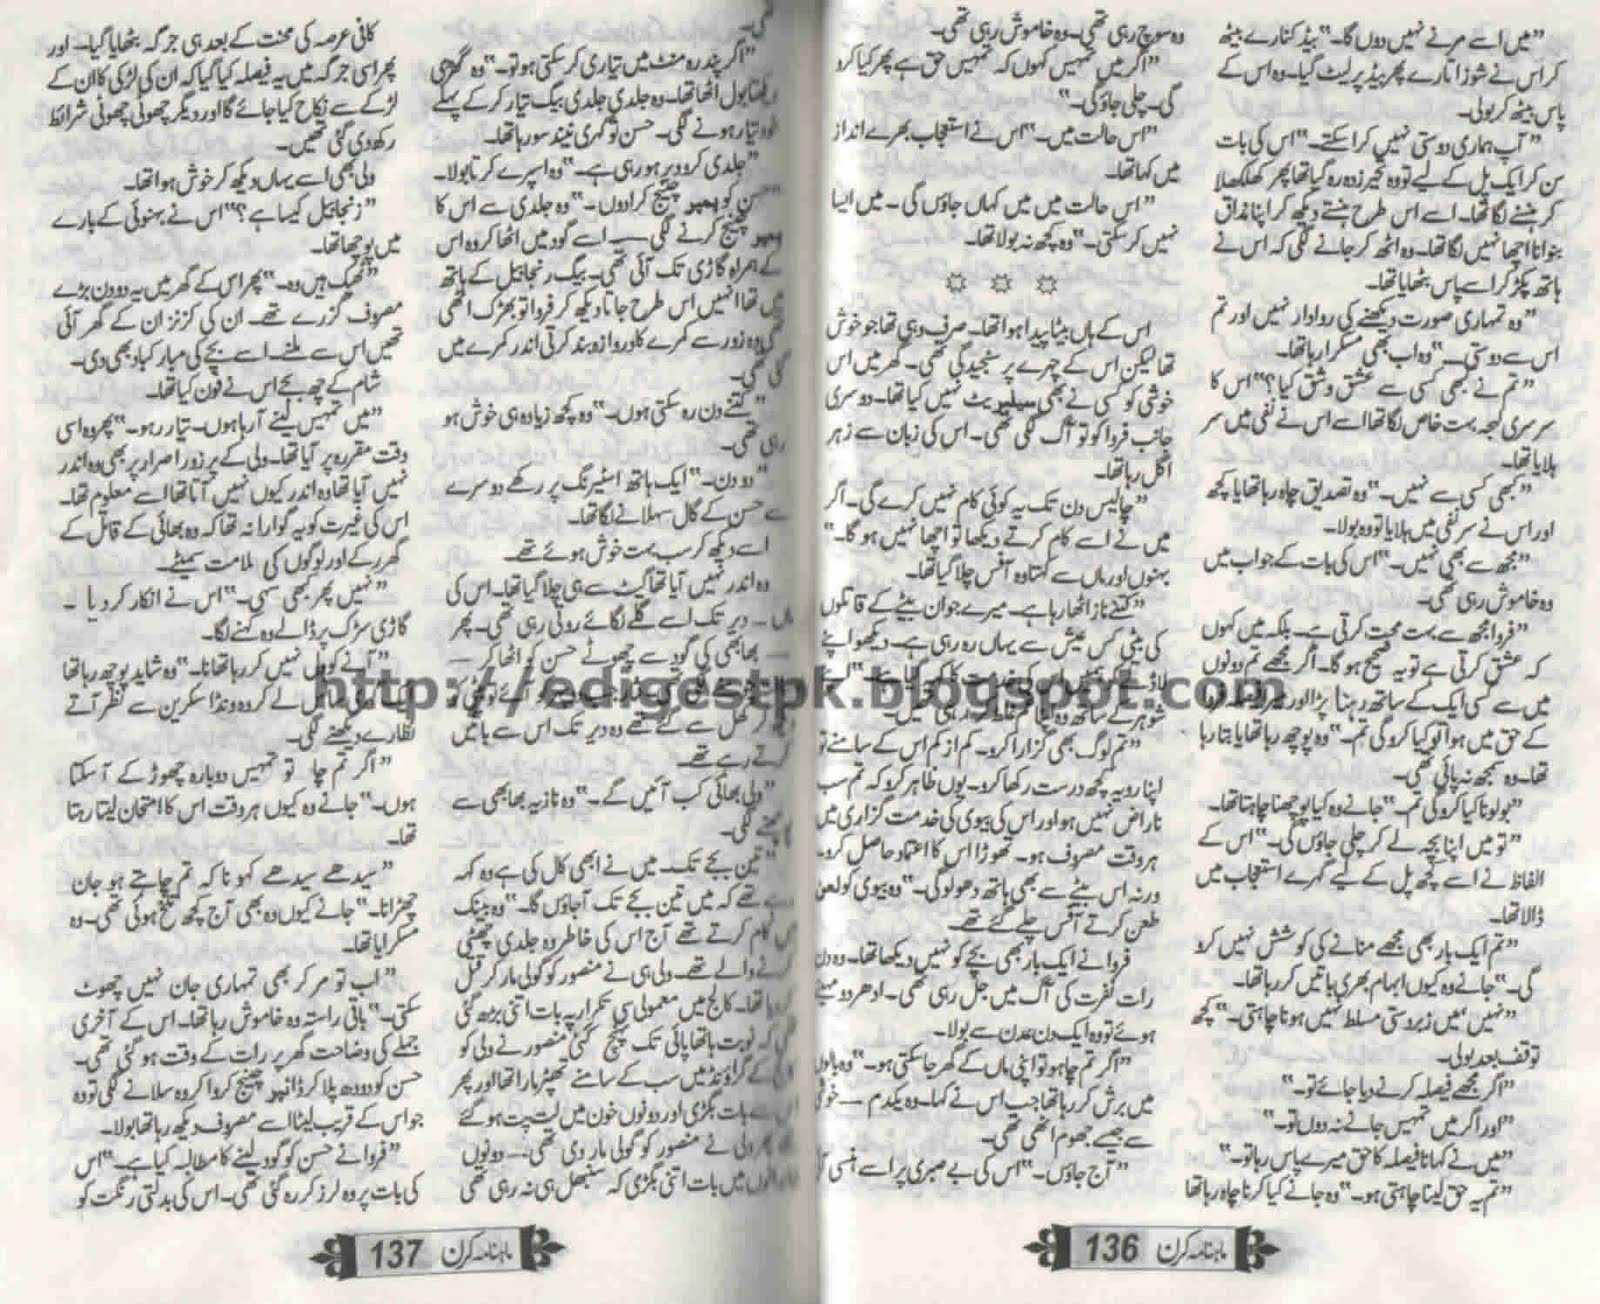 ”میں اسے مرنے نہیں دوں گا۔“ بیڈ کنارے بیٹھ
کر اس نے شوز اتارے پھر بیڈ پر لیٹ گیا۔ وہ اس کے
پاس بیٹھ کر بولی۔
”آپ ہماری دوستی نہیں کرا سکتے۔“ اس کی بات
سن کر ایک پل کے لیے تو وہ تحیر زدہ رہ گیا تھا پھر کھلکھلا
کر ہنسنے لگا تھا۔ اسے اس طرح ہنستے دیکھ کر اپنا مذاق
بنوانا اچھا نہیں لگا تھا۔ وہ اٹھ کر جانے لگی کہ اس نے
ہاتھ پکڑ کر اسے پاس بٹھایا تھا۔
”وہ تمہاری صورت دیکھنے کی روادار نہیں اور تم
اس سے دوستی۔۔“ وہ اب بھی مسکرا رہا تھا۔
”تم نے کبھی کسی سے عشق وشق کیا؟“ اس کا
سرسری لہجہ بہت خاص لگا تھا اسے اس نے نفی میں سر
ہلایا تھا۔
”کبھی کسی سے نہیں۔“ وہ تصدیق چاہ رہا تھا یا کچھ
اور اس نے سر نفی میں ہلایا تو وہ بولا۔
”مجھ سے بھی نہیں۔“ اس کی بات کے جواب میں
وہ خاموش رہی تھی۔
”فروا مجھ سے بہت محبت کرتی ہے۔ بلکہ میں کہوں
کہ عشق کرتی ہے تو یہ صحیح ہو گا۔ اگر مجھے تم دونوں
میں سے کسی ایک کے ساتھ رہنا پڑا اور
کے حق میں ہوا تو کیا کرو گی تم۔“ وہ پوچھ رہا تھا یا بتا رہا
تھا۔ وہ سمجھ نہ پائی تھی۔
”بولو نا کیا کرو گی تم۔“ جانے وہ کیا پوچھنا چاہتا تھا۔
”تو میں اپنا بچہ لے کر چلی جاؤں گی۔“ اس کے
الفاظ نے اسے کچھ پل کے لیے گہرے استعجاب میں
ڈالا تھا۔
”تم ایک بار بھی مجھے منانے کی کوشش نہیں کرو
گی۔“ جانے وہ کیوں ابہام بھری باتیں کر رہا تھا۔
”نہیں میں زبردستی مسلط نہیں ہونا چاہتی۔“ کچھ
توقف بعد بولی۔
”اگر مجھے فیصلہ کرنے دیا جائے تو۔“
”اور اگر میں تمہیں جانے نہ دوں تو۔“
”میں نے کہا نا فیصلہ کا حق میرے پاس رہا تو۔“
”تم یہ حق لینا چاہتی ہو۔“ وہ جانے کیا کرنا چاہ رہا تھا
وہ سوچ رہی تھی۔ وہ خاموش رہی تھی۔
”اگر میں تمہیں کہوں کہ تمہیں حق ہے پھر کیا کرو
گی۔ چلی جاؤ گی۔“
”اس حالت میں۔“ اس نے استعجاب بھرے انداز
میں کہا تھا۔
”اس حالت میں میں کہاں جاؤں گی۔ میں ایسا
نہیں کر سکتی۔“ وہ کچھ نہ بولا تھا۔
اس کے ہاں بیٹا پیدا ہوا تھا۔ صرف وہی تھا جو خوش
تھا لیکن اس کے چہرے پر سنجیدگی تھی۔ گھر میں اس
خوشی کو کسی نے بھی سیلیبریٹ نہیں کیا تھا۔ دوسری
جانب فروا کو تو آگ لگی تھی۔ اس کی زبان سے زہر
اگل رہا تھا۔
”چالیس دن تک یہ کوئی کام نہیں کرے گی۔ اگر
میں نے اسے کام کرتے دیکھا تو اچھا نہیں ہو گا۔“
بہنوں اور ماں سے کہتا وہ آفس چلا گیا تھا۔
”کتنے ناز اٹھا رہا ہے۔ میرے جوان بیٹے کے قاتلوں
کی بیٹی کس عیش سے یہاں رہ رہی ہے۔ دیکھو اپنے
لاڈلے کو ہمیں اس کی خدمت کا کہہ گیا ہے۔“
شوہر کے ساتھ وہ
”تم لوگ بھی گزارا کرو۔ کم از کم اس کے سامنے تو
اپنا رویہ کچھ درست رکھا کرو۔ یوں ظاہر کرو کہ تم سب
ناراض نہیں ہو اور اس کی بیوی کی خدمت گزاری میں
ہر وقت مصروف ہو۔ تھوڑا اس کا اعتماد حاصل کرو۔
ورنہ اس بیٹے سے بھی ہاتھ دھو لو گی۔“ وہ بیوی کو لعن
طعن کرتے آفس چلے گئے تھے۔
فروا نے ایک بار بھی بچے کو نہیں دیکھا تھا۔ وہ دن
رات نفرت کی آگ میں جل رہی تھی۔ ادھر دو مہینے
ہوئے تو وہ ایک دن عدن سے بولا۔
”اگر تم چاہو تو اپنی ماں کے گھر جا سکتی ہو۔“ وہ بالوں
میں برش کر رہا تھا جب اس نے کہا۔ وہ یکدم — خوشی
سے جیسے جھوم اٹھی تھی۔
”آج جاؤں۔“ اس کی بے صبری پر اسے ہنسی آ
ماہنامہ کرن 136
گئی۔
”اگر پندرہ منٹ میں تیاری کر سکتی ہو تو۔“ وہ گھڑی
بول اٹھا تھا۔ وہ جلدی جلدی بیگ تیار کر کے پہلے
خود تیار ہونے لگی۔ حسن تو گہری نیند سو رہا تھا۔
”جلدی کرو دیر ہو رہی ہے۔“ وہ اسپرے کرتا بولا۔
”حسن کو پیمپر چینج کرا دوں۔“ وہ جلدی سے اس کا
پیمپر چینج کرنے لگی — اسے گود میں اٹھا کر وہ اس
کے ہمراہ گاڑی تک آئی تھی۔ بیگ زنجابیل کے ہاتھ
میں تھا انہیں اس طرح جاتا دیکھ کر فروا تو بھڑک اٹھی
وہ زور سے کمرے کا دروازہ بند کرتی اندر کمرے میں
گئی تھی۔
”کتنے دن رہ سکتی ہوں۔“ وہ کچھ زیادہ ہی خوش ہو
رہی تھی۔
”دو دن۔“ ایک ہاتھ اسٹیرنگ پر رکھے دوسرے
سے حسن کے گال سہلانے لگا تھا۔
اسے دیکھ کر سب بہت خوش ہوئے تھے۔
وہ اندر نہیں آیا تھا گیٹ سے ہی چلا گیا تھا۔ اس کی
ماں — دیر تک اسے گلے لگائے روتی رہی تھی۔ پھر
— بھابھی کی گود سے چھوٹے حسن کو اٹھا کر —
کر گھل سے گئے تھے وہ دیر تک اس سے باتیں
کرتے رہے تھے۔
”ولی بھائی کب آئیں گے۔“ وہ نازیہ بھابھی سے
پوچھنے لگی۔
”تین بجے تک۔ میں نے ابھی کال کی ہے وہ کہہ
رہے تھے کہ میں تین بجے تک آ جاؤں گا۔“ وہ بینک
میں کام کرتے تھے آج اس کی خاطر وہ جلدی چھٹی
کرنے والے تھے۔ ولی ہی نے منصور کو گولی مار کر قتل
کر دیا تھا۔ کالج میں معمولی سی تکرار پہ بات اتنی بڑھ گئی
تھی کہ نوبت ہاتھا پائی تک پہنچ گئی منصور نے ولی کو
کے گراؤنڈ میں سب کے سامنے تھپڑ مارا تھا اور پھر
اس سے بات بگڑی اور دونوں خون میں لت پت ہو گئے
پھر ولی نے منصور کو گولی مار دی تھی۔۔ دونوں
میں بات اتنی بگڑی کہ سنبھل ہی نہ رہی تھی
کافی عرصہ کی محنت کے بعد ہی جرگہ بٹھایا گیا۔ اور
پھر اسی جرگہ میں یہ فیصلہ کیا گیا کہ ان کی لڑکی کا ان کے
لڑکے سے نکاح کیا جائے گا اور دیگر چھوٹی چھوٹی شرائط
رکھ دی گئی تھیں۔
ولی بھی اسے یہاں دیکھ کر خوش ہوا تھا۔
”زنجابیل کیسا ہے؟“ اس نے بہنوئی کے بارے
میں پوچھا تھا۔
”ٹھیک ہیں وہ۔“ پھر اس کے گھر میں یہ دو دن بڑے
مصروف گزرے تھے۔ ان کی کزنز ان کے گھر آئی
تھیں اس سے ملنے۔ اسے بچے کی مبارکباد بھی دی۔
شام کے چھ بجے اس نے فون کیا تھا۔
”میں تمہیں لینے آ رہا ہوں۔ تیار رہو۔“ پھر وہ اسی
وقت مقررہ پر آیا تھا۔ ولی کے پر زور اصرار پر بھی وہ اندر
نہیں آیا تھا وہ اندر کیوں نہیں آتا تھا اسے معلوم تھا۔
اس کی غیرت کو یہ گوارا نہ تھا کہ وہ بھائی کے قاتل کے
گھر رکے اور لوگوں کی ملامت سمیٹے۔
”نہیں پھر کبھی سہی۔“ اس نے انکار کر دیا ۔
گاڑی سڑک پر ڈالے وہ کہنے لگا۔
”آنے کو دل نہیں کر رہا تھا نا۔“ وہ شاید پوچھ رہا تھا
لے کر وہ ونڈ اسکرین سے نظر آتے
نظارے دیکھنے لگی۔
”اگر تم چاہو تو تمہیں دوبارہ چھوڑ کے آ سکتا
ہوں۔“ جانے وہ کیوں ہر وقت اس کا امتحان لیتا رہتا
تھا۔
”سیدھے سیدھے کہو نا کہ تم چاہتے ہو جان
چھڑانا۔“ جانے کیوں وہ بھی آج کچھ تلخ ہوئی تھی۔ وہ
مسکرایا تھا۔
”اب تو مر کر بھی تمہاری جان نہیں چھوٹ
سکتی۔“ باقی راستہ وہ خاموش رہا تھا۔ اس کے آخری
جملے کی وضاحت گھر پر رات کے وقت ہو گئی تھی۔
حسن کو دودھ پلا کر ڈائپر چینج کروا کر وہ سلانے لگی تو وہ
جو اس کے قریب لیٹا اسے مصروف دیکھ رہا تھا بولا۔
”فروا نے حسن کو گود لینے کا مطالبہ کیا ہے۔“ اس
کی بات پر وہ لرز کر رہ گئی تھی۔ اس کی بدلتی رنگت کو
ماہنامہ کرن 137
http://edigestpk.blogspot.com